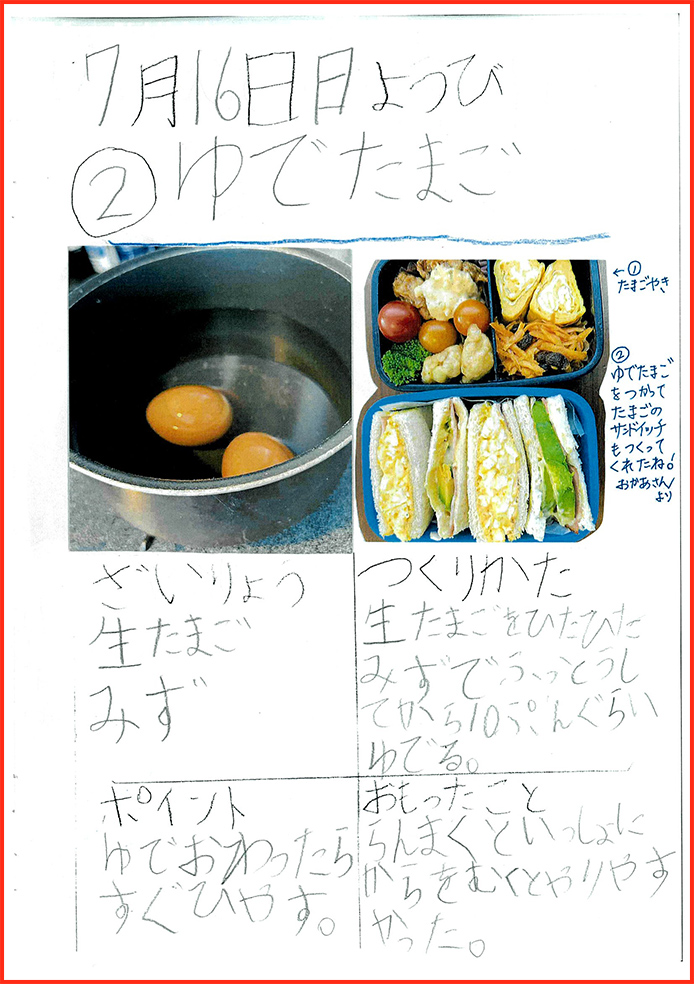 7月16日日ようび
②ゆでたまご
←①
たまごやき
②
ゆでたまご
をつかって
たまごの
サンドイッチ
もつくって
くれたね!
おかあさん
より
ざいりょう
生たまご
みず
つくりかた
生たまごをひたひた
みずでふっとうし
てから10ぷんぐらい
ゆでる。
ポイント
ゆでおわったら
すぐひやす。
おもったこと
らんまくといっしょに
からをむくとやりやす
かった。